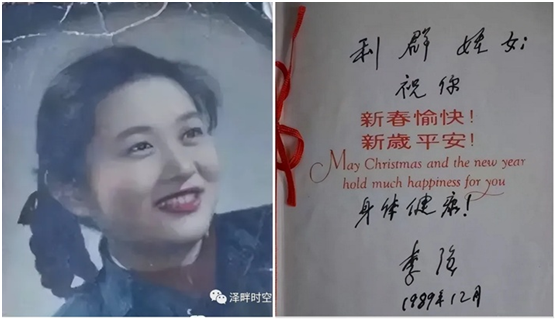 泽畔时空
利群姪女:
祝你
新春愉快!
新歲平安!
May Christmas and the new year
hold much happiness for you
身体健康!
李强
1989年12月